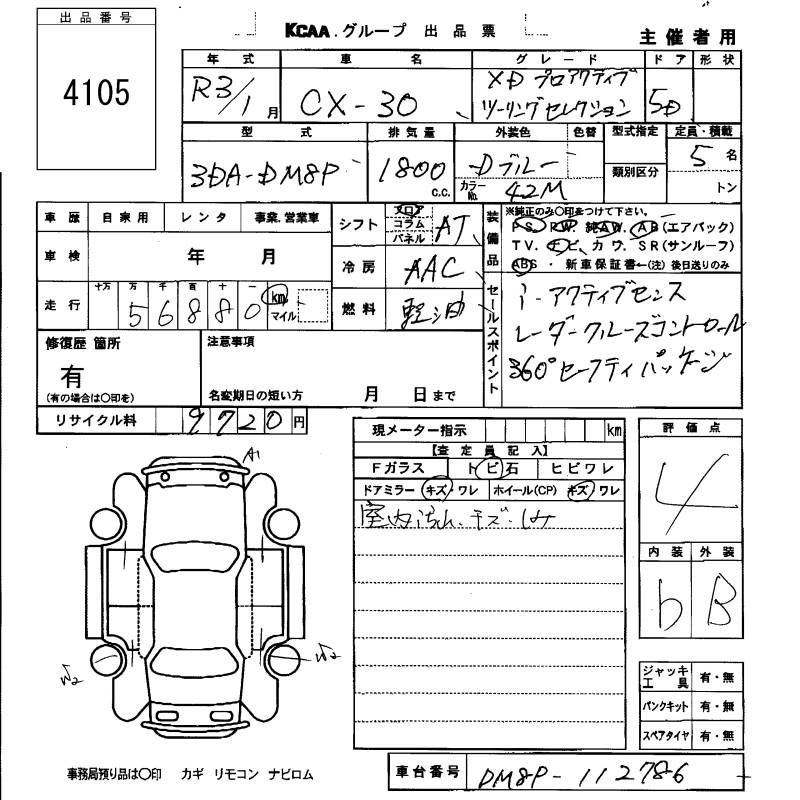 出品番号
4105
KCAA.グループ 出品票
主催者用
年式 車名 グレード ドア 形状
R3/1月 CX-30 XD プロアクティブ ツーリングセレクション 5D
型式 排気量 外装色 色替 型式指定 定員・積載
3DA-DM8P 1800 c.c. Dブルー 類別区分 5名
カラーNo. 42M トン
車歴 自家用 レンタ 事業.営業車
車検 年 月
走行 十万 万 千 百 十 一
56880 km マイル
シフト フロア コラム パネル AT
冷房 AAC
燃料 軽油
装備品
※純正のみ○印をつけて下さい。
PS. PW. 純AW. AB(エアバック)
TV. ナビ. カワ. SR(サンルーフ)
ABS・新車保証書←(注)後日送りのみ
セールスポイント
i-アクティブセンス
レーダークルーズコントロール
360°セーフティパッケージ
修復歴 箇所
有
(有の場合は○印を)
注意事項
名変期日の短い方 月 日まで
リサイクル料 9720円
現メーター指示 km
【査定員記入】
Fガラス トビ石 ヒビワレ
ドアミラー キズ・ワレ ホイール(CP) キズ・ワレ
室内汚れ.キズ.しみ
評価点
4
内装 外装
b B
A1
W2
W2
ジャッキ工具 有・無
パンクキット 有・無
スペアタイヤ 有・無
事務局預り品は○印 カギ リモコン ナビロム
車台番号 DM8P-112786